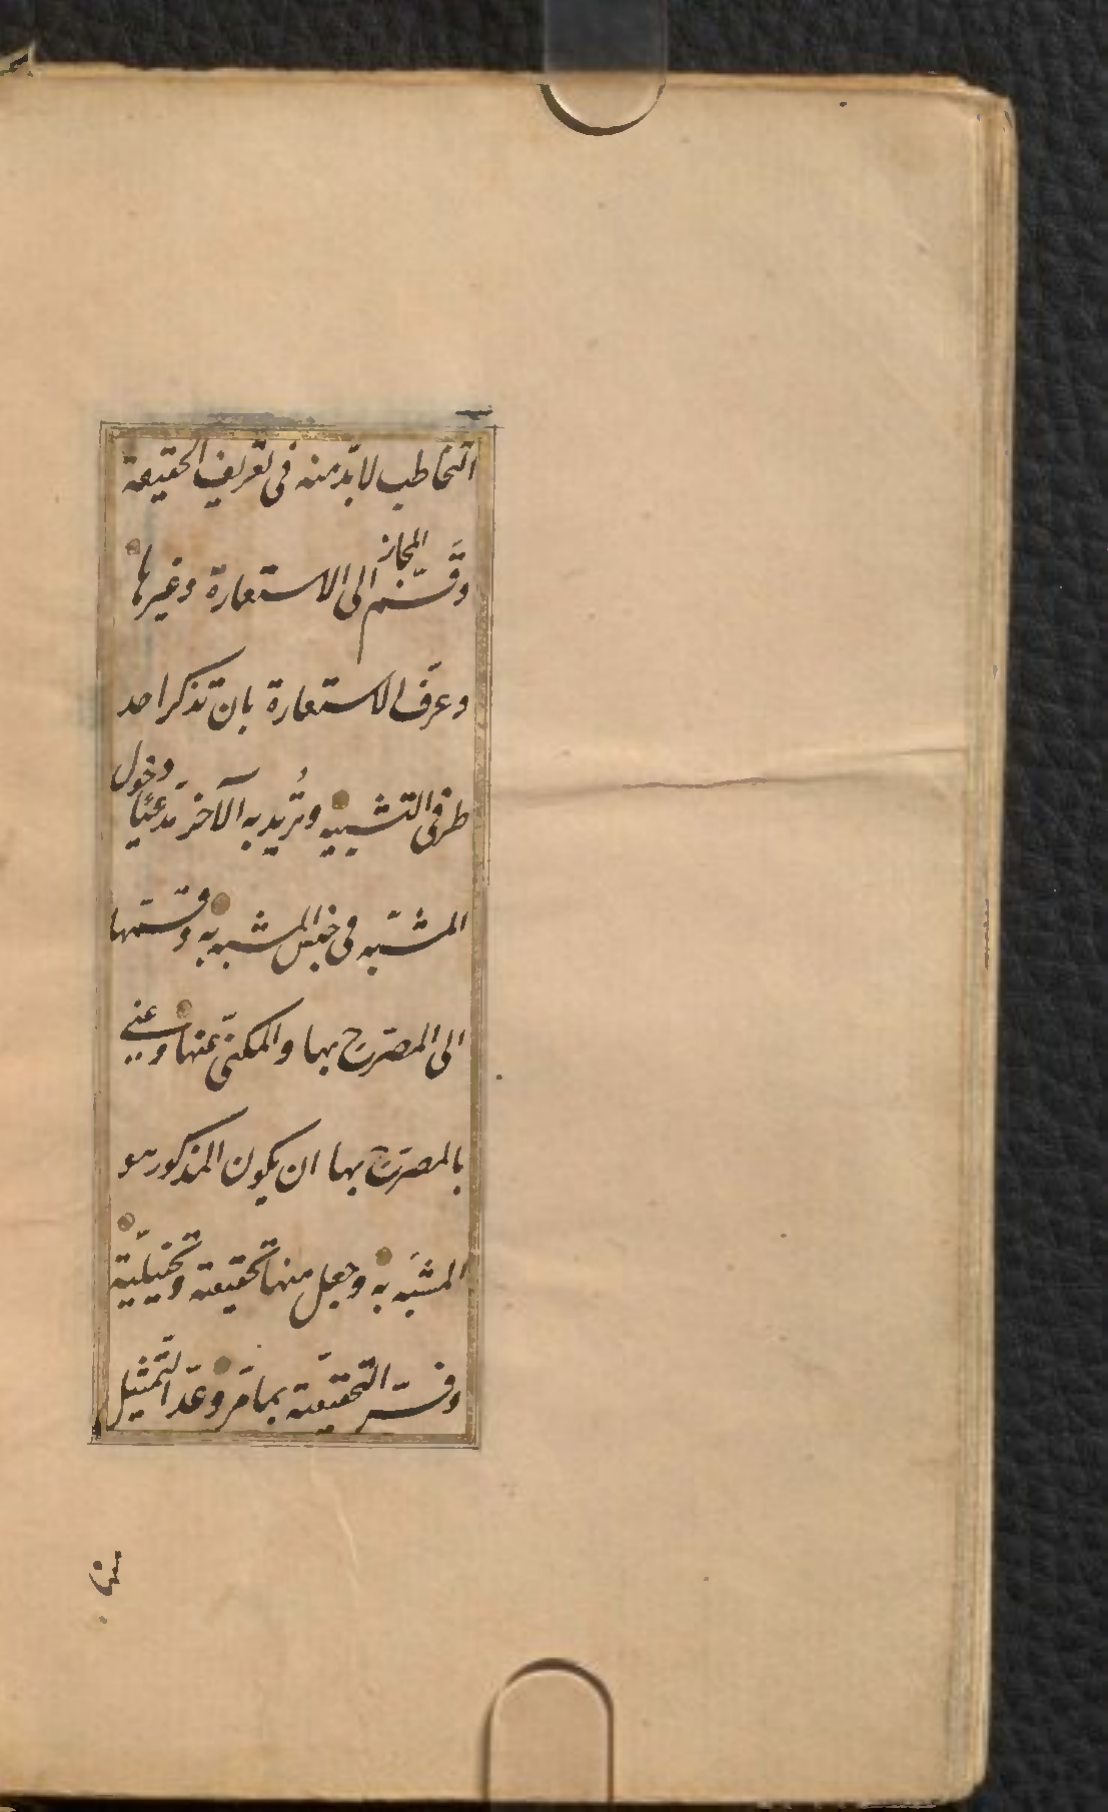 التخاطب لا بدّ منه فى تعريف الحقيقة
وقَسَّم المجاز الى الاستعارة وغيرها
وعرّف الاستعارة بان تذكر احد
طرفى التشبيه وتُريد به الآخر مدّعيًا دخول
المشبّه فى جنس المشبه به وقسّمها
الى المصرّح بها والمكنىّ عنها وعنى
بالمصرّح بها ان يكون المذكور هو
المشبَّه به وجعل منها تحقيقية وتخييليّة
وفسّر التحقيقيّة بما مرّ وعدّ التّمثيل
منها